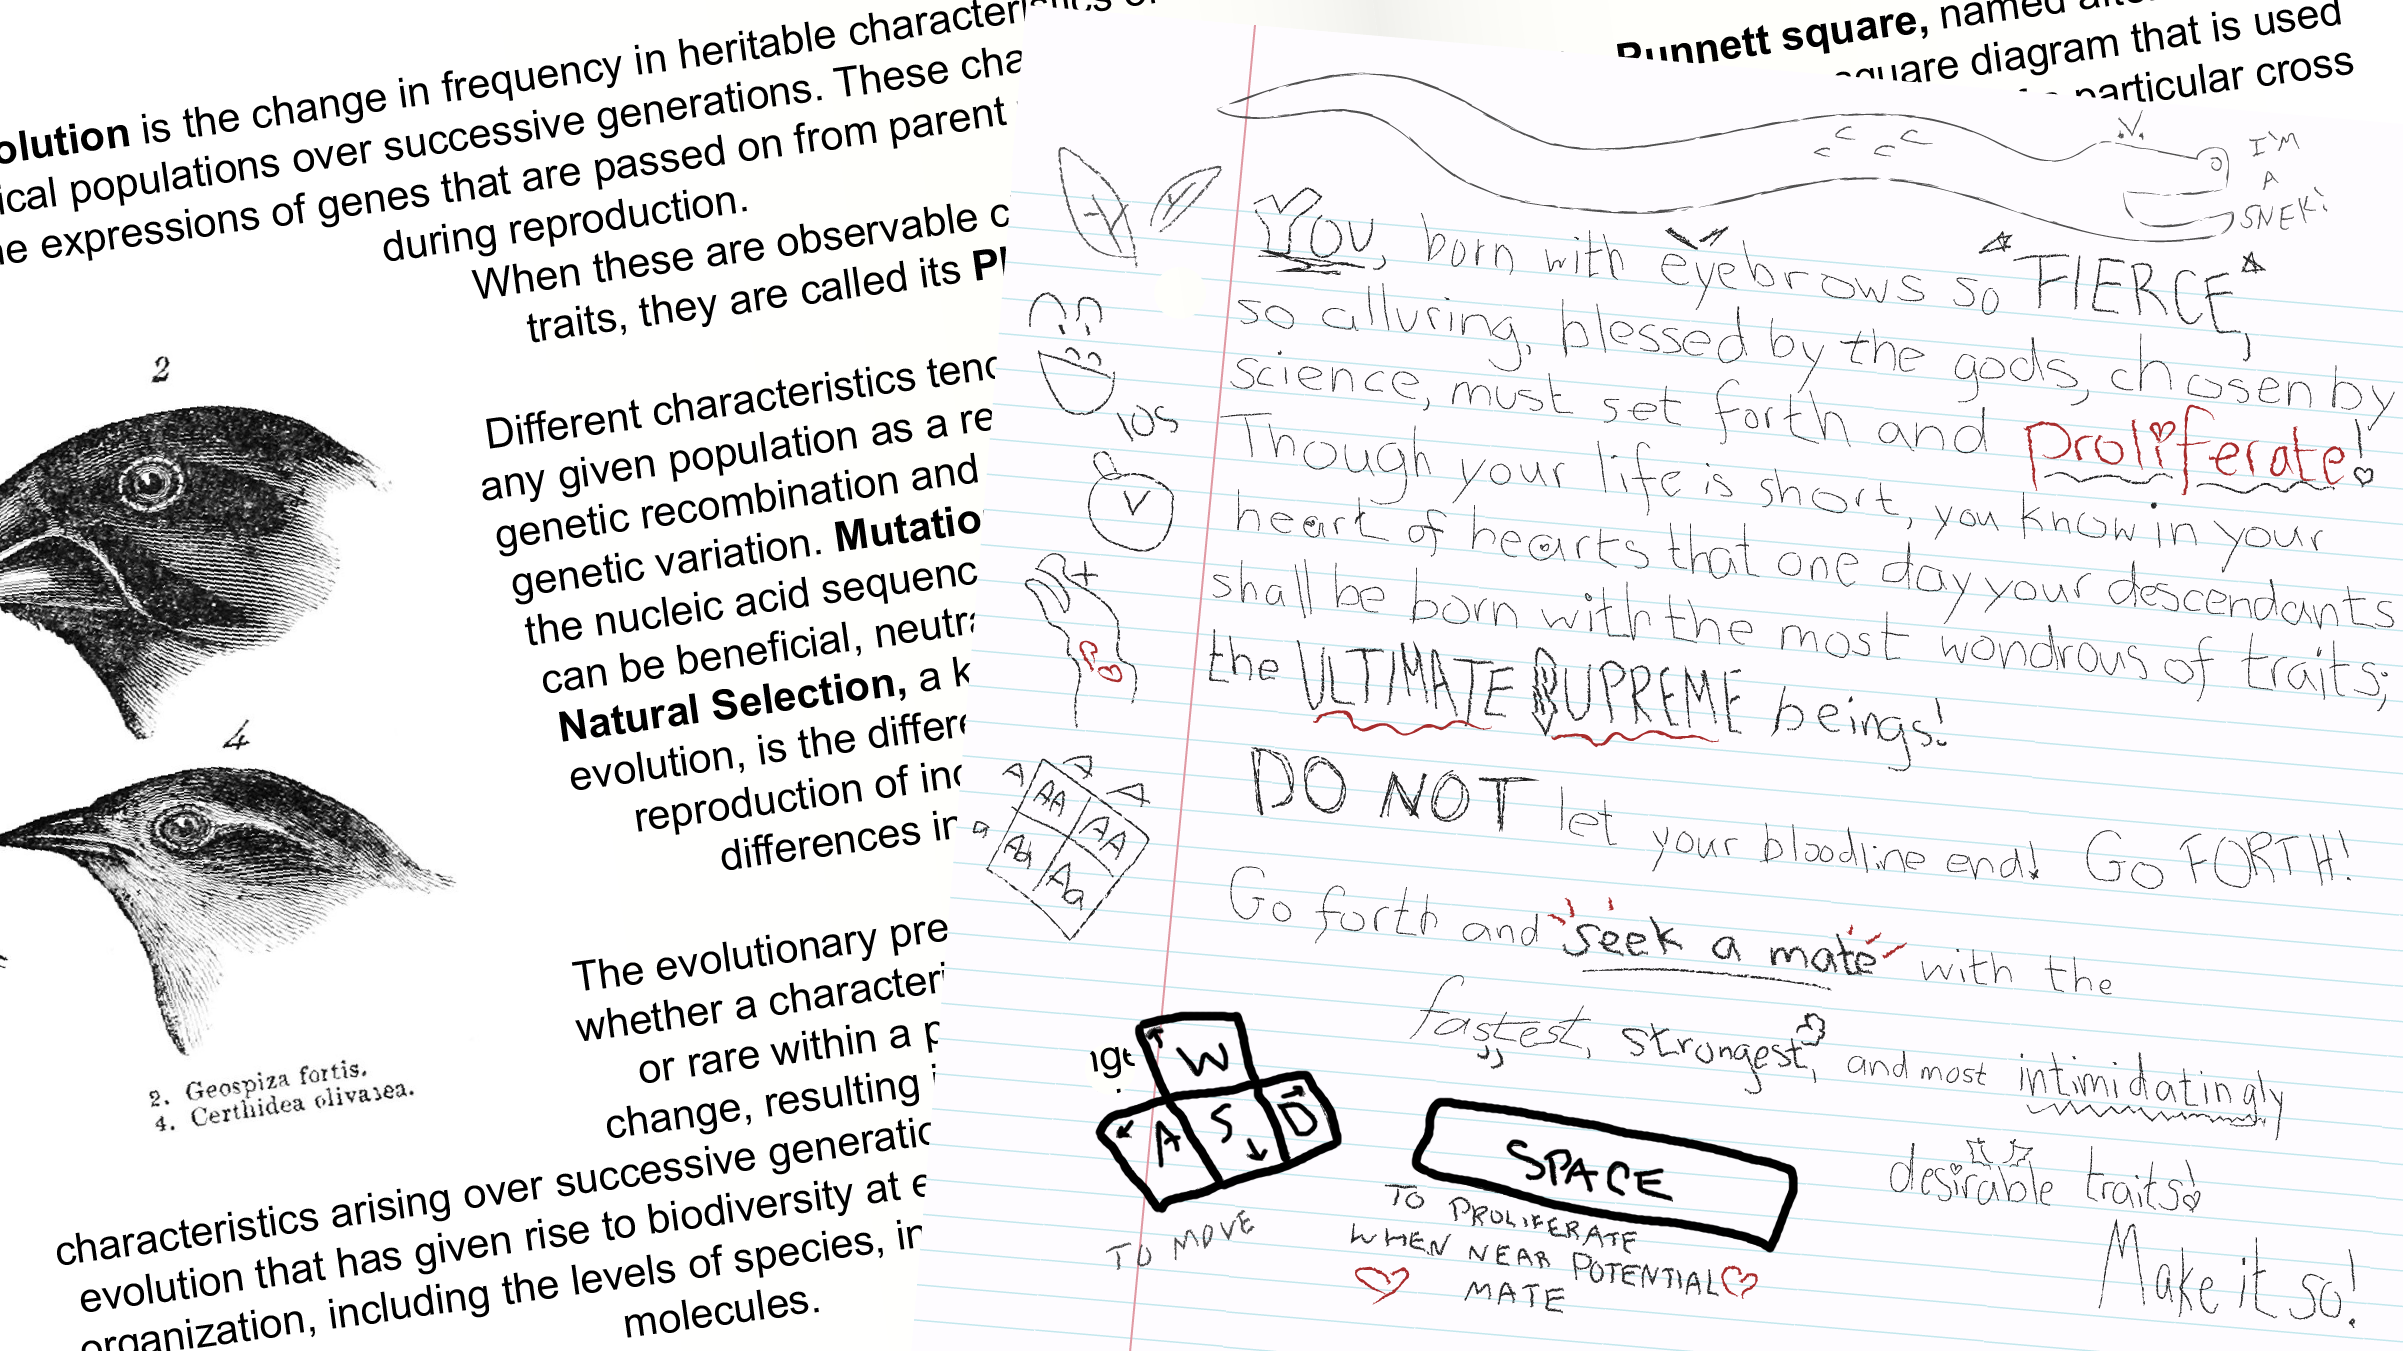 olution is the change in frequency in heritable
ical populations over successive generations. These
e expressions of genes that are passed on from parent
during reproduction.
When these are observable
traits, they are called its
2
Different characteristics
any given population as a
genetic recombination and
genetic variation. Mutatio
the nucleic acid
can be beneficial,
Natural Selection, a
evolution, is the
reproduction of
differences
4
The evolutionary
whether a
or rare within a
change, resulting
2. Geospiza fortis.
4. Certhidea olivacea.
characteristics arising over successive
evolution that has given rise to biodiversity at
organization, including the levels of species,
molecules.
Punnett square, named
square diagram that is used
particular cross
I'M
A
SNEK!
You, born with eyebrows so FIERCE,
so alluring, blessed by the gods, chosen by
science, must set forth and proliferate!
Though your life is short, you know in your
heart of hearts that one day your descendants
shall be born with the most wondrous of traits;
the ULTIMATE SUPREME beings!
DO NOT let your bloodline end! Go FORTH!
Go forth and seek a mate with the
fastest, strongest, and most intimidatingly
desirable traits!
Make it so!
10S
A A
A AA AA
a Aa Aa
W
A S D
TO MOVE
SPACE
TO PROLIFERATE
WHEN NEAR POTENTIAL
MATE